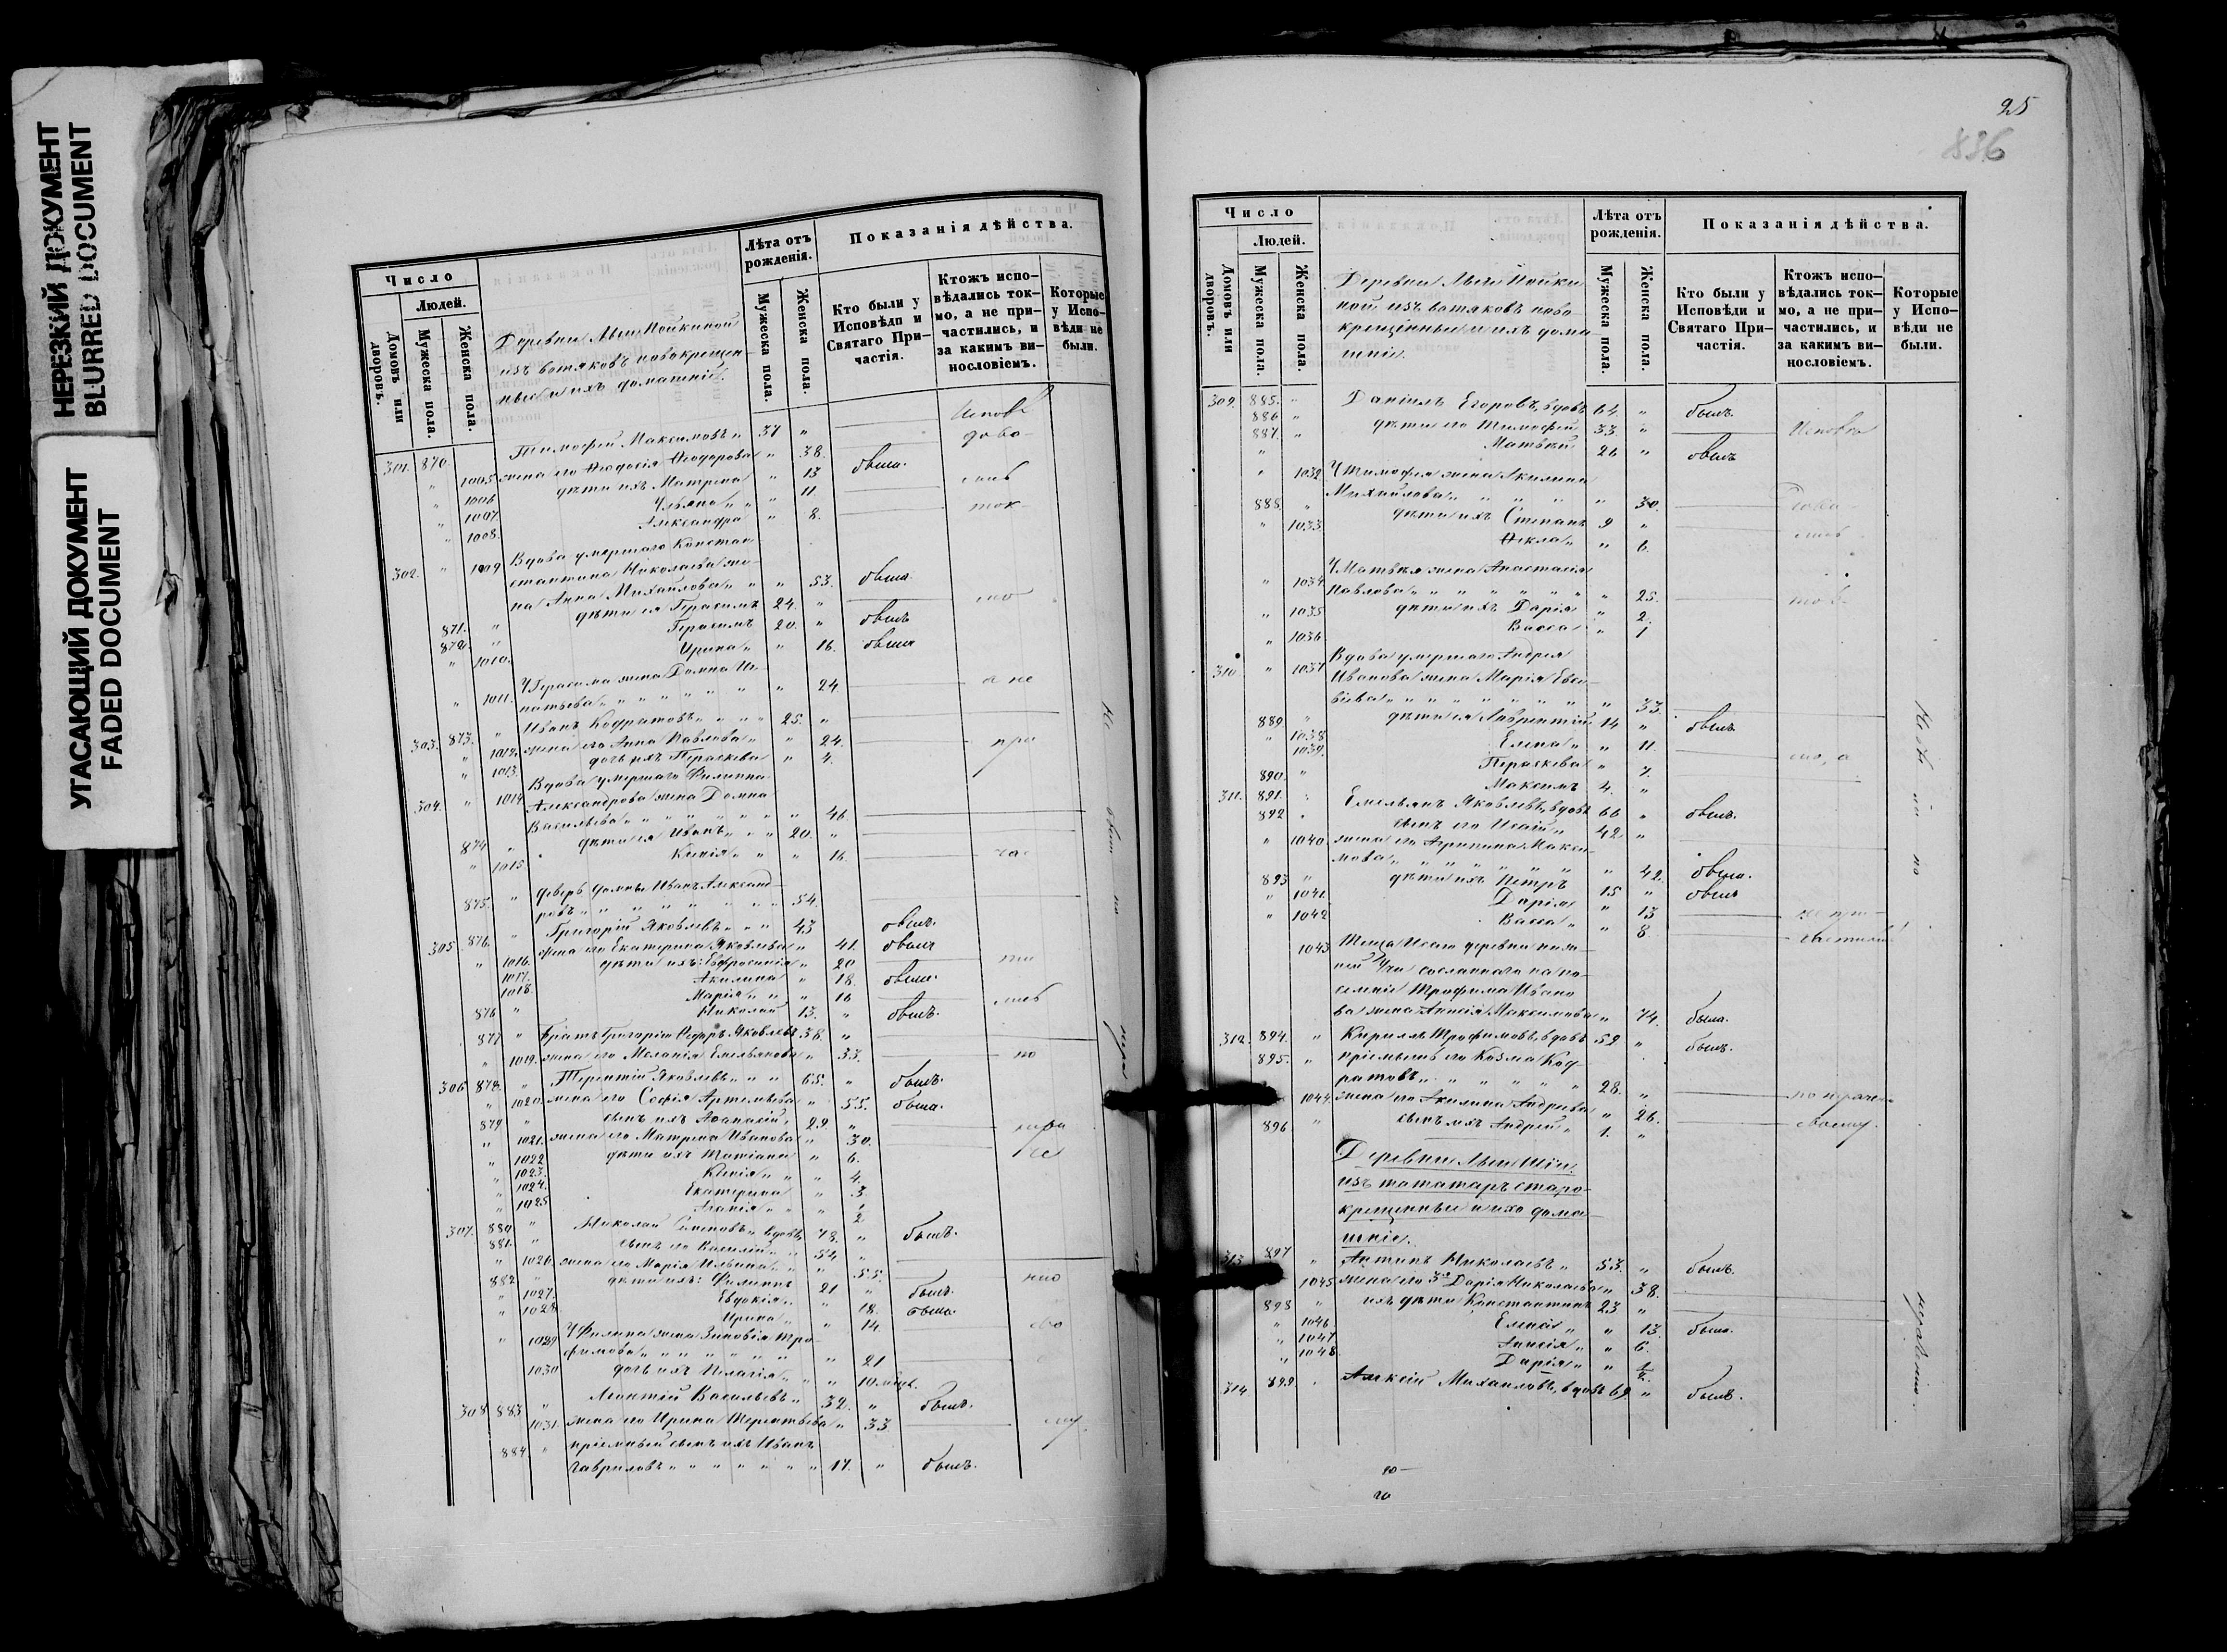 НЕРЕЗКИЙ ДОКУМЕНТ
BLURRED DOCUMENT
УГАСАЮЩИЙ ДОКУМЕНТ
FADED DOCUMENT
Число
Людей.
Домовъ или дворовъ.
Мужеска пола.
Женска пола.
Деревни
изъ вотяковъ новокрещен-
ные и ихъ домашніе.
Лѣта отъ рожденія.
Мужеска пола.
Женска пола.
Показанія дѣйства.
Кто были у Исповѣди и Святаго При-частія.
Ктожъ испо-вѣдались ток-мо, а не при-частились, и за какимъ ви-нословіемъ.
Которые у Испо-вѣди не были.
301. 870. Тимофей Максимовъ " 37 "
" 1005 жена его Феодосія Феодорова " 38.
" 1006 дѣти ихъ Матрена " 13 была.
" 1007. Ульяна " " 11.
" 1008. Александра " 8.
302. " 1009 Вдова умершаго Констан-
стантина Николаева же-
на Анна Михайлова " " " 53. была.
871. " дѣти ея Герасимъ 24. "
872. " Герасимъ 20. " былъ
" 1010. Ирина " " 16. была
" 1011. У Герасима жена Домна Иг-
натьева " " " " " " 24.
303. 873. " Иванъ Кодратовъ " " " 25. "
" 1012. жена его Анна Павлова " " 24.
" 1013. дочь ихъ Параскева " 4.
304. " 1014 Вдова умершаго Филиппа
Александрова жена Домна
Васильева " " " " " " 46.
874 " дѣти ея Иванъ " " " 20. "
" 1015 Ксенія " " " 16.
875. " деверь Домны Иванъ Александ-
ровъ " " " " " " " 54.
305 876. " Григорій Яковлевъ " " " 43 былъ.
" 1016. жена его Екатерина Яковлева " 41. была
1017. дѣти ихъ: Евфросинія " 20
1018. Акилина " 18. была.
Марія " " " 16
876 " Николай 13. " былъ.
877 " Братъ Григорія Ѳедоръ Яковлевъ 38. "
" 1019. жена его Меланія Емельянова " 33.
306 878. " Терентій Яковлевъ " " " 65. " былъ.
" 1020. жена его Софія Артемьева " 55. была.
879 " сынъ ихъ Афанасій " 29 "
" 1021. жена его Матрена Иванова " 30.
" 1022 дѣти ихъ Татіана " 6.
" 1023. Ксенія " " " 4.
" 1024. Екатерина " 3
" 1025 Агапія " " "
307. 880 " Николай Семеновъ " вдовъ 78. " былъ.
881. " сынъ его Василій " " 54 "
" 1026. жена его Марія Ильина " " " 55.
882 " дѣти ихъ: Филиппъ 21 " былъ.
" 1027. Евдокія " " 18. была.
" 1028. Ирина " " 14.
" 1029 У Филиппа жена Зиновія Тро-
фимова " " " " " " 21
1030 дочь ихъ Пелагія " " " 10 мѣсц.
308 883 " Леонтій Васильевъ " 32. " былъ.
1031. жена его Ирина Терентьева " 33
884 " пріемный сынъ ихъ Иванъ
Гавриловъ " " " " " " " 17. " былъ.
25
836
Число
Людей.
Домовъ или дворовъ.
Мужеска пола.
Женска пола.
Деревни
изъ вотяковъ ново-
крещенные и ихъ дома-
шніе.
Лѣта отъ рожденія.
Мужеска пола.
Женска пола.
Показанія дѣйства.
Кто были у Исповѣди и Святаго При-частія.
Ктожъ испо-вѣдались ток-мо, а не при-частились, и за какимъ ви-нословіемъ.
Которые у Испо-вѣди не были.
309. 885. " Даніилъ Егоровъ, вдовъ 64. " былъ.
886 " дѣти его Тимофей 33. "
887. " Матвѣй 26 " былъ
" 1032 У Тимофея жена Акилина
Михайлова " " " " " 30.
888. " дѣти ихъ Степанъ 9 "
" 1033. Фекла " " 6.
" 1034 У Матвѣя жена Анастасія
Павлова " " " " " " " 25.
" 1035 дѣти ихъ Дарія " 2.
" 1036 Васса " 1
310 " 1037 Вдова умершаго Андрея
Иванова жена Марія Евсе-
віева " " " " " " " 33.
889 " дѣти ея Лаврентій 14 " былъ
" 1038 Елена " " 11.
" 1039. Параскева " 7.
890. " Максимъ 4. "
311. 891. " Емельянъ Яковлевъ, вдовъ 66 " былъ.
892 " сынъ его Исаій " 42. "
" 1040. жена его Агрипина Макси-
мова " " " " " " 42. была.
893 " дѣти ихъ Петръ 15 " былъ
" 1041. Дарія " 13
" 1042 Васса " " 8.
1043 Теща Исаія деревни
сосланнаго на по-
селеніе Трофима Ивано-
ва жена Анисія Максимова " 74. была.
312. 894. " Кириллъ Трофимовъ, вдовъ 52 " былъ.
895. " пріемышъ его Козма Код-
ратовъ " " " " " " 28. "
1044 жена его Акилина Андреева " 26.
896 " сынъ ихъ Андрей " 1. "
Деревни
изъ тататаръ старо-
крещенные и ихъ дома-
шніе.
313 897 " Антипъ Николаевъ " 53. " былъ.
1045 жена его Дарія Николаева " 38.
898 " ихъ дѣти Константинъ 23 "
" 1046. Елена " " 13. была.
" 1047 Анисія " " 6.
" 1048. Дарія " "
314 899. " Алексій Михаиловъ, вдовъ 69 " былъ.